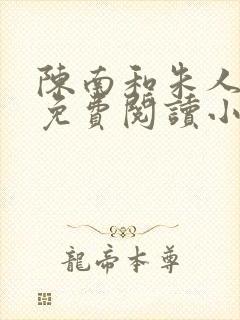 陳南和朱人
免費閱讀小
龍帝本尊